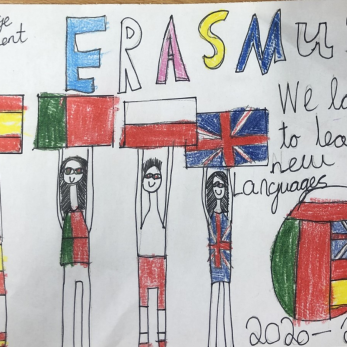 ERASMU
We lo
to lea
new
Languages
2020-2